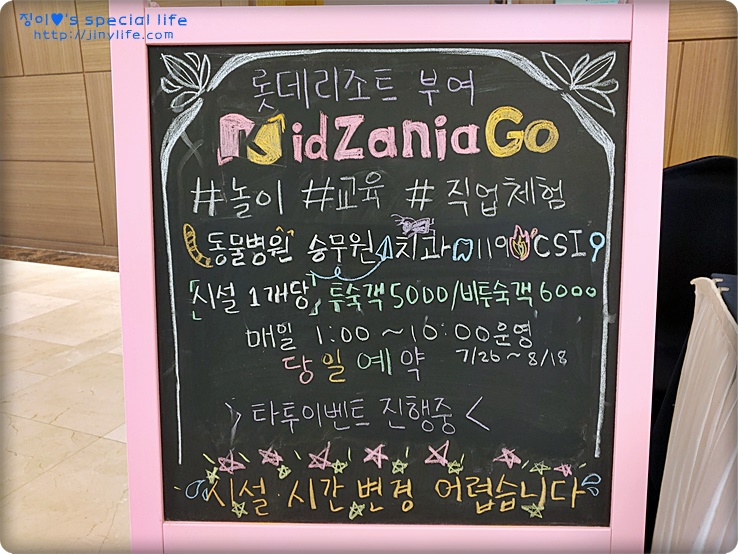 징이♥'s special life
http://jinylife.com
롯데리조트 부여
KidZaniaGo
#놀이 #교육 #직업체험
동물병원 승무원 치과 119 CSI
「시설 1개당」 투숙객 5000/비투숙객 6000
매일 1:00 ~ 10:00 운영
당일예약 7/26 ~ 8/18
> 타투이벤트 진행중 <
시설·시간 변경 어렵습니다